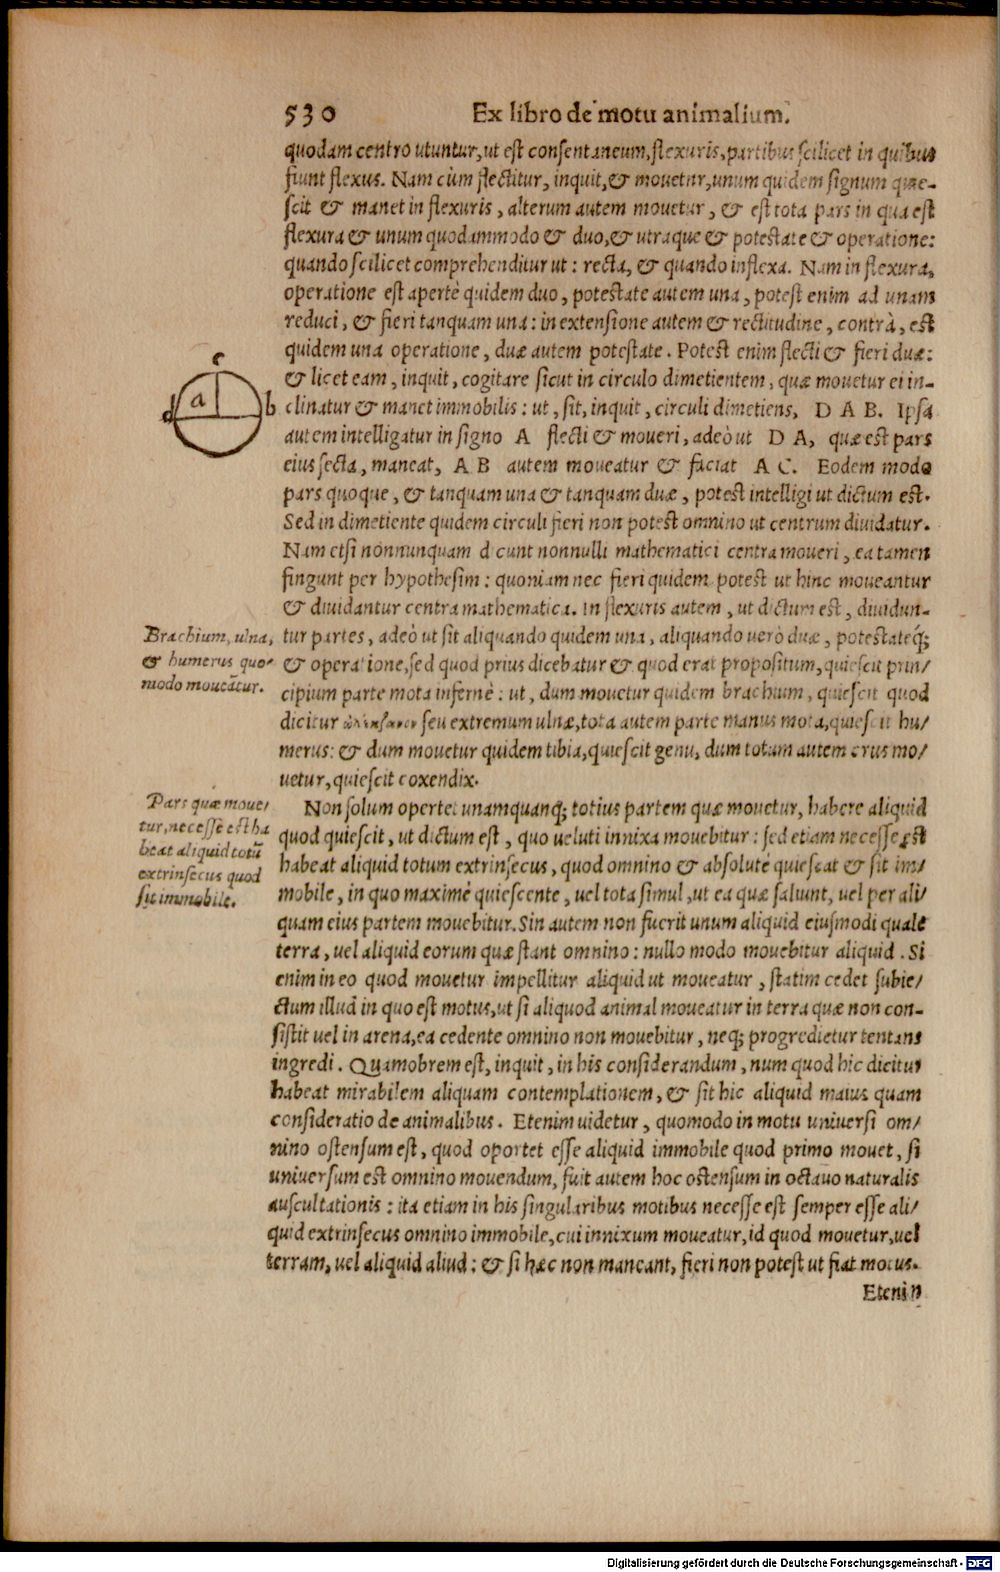 530 Ex libro de motu animalium.
quodam centro utuntur, ut est consentaneum, flexuris, partibus scilicet in quibus
fiunt flexus. Nam cùm flectitur, inquit, & mouetur, unum quidem signum quie-
scit & manet in flexuris, alterum autem mouetur, & est tota pars in qua est
flexura & unum quodammodo & duo, & utraque & potestate & operatione:
quando scilicet comprehenditur ut: recta, & quando inflexa. Nam in flexura,
operatione est apertè quidem duo, potestate autem una, potest enim ad unam
reduci, & fieri tanquam una: in extensione autem & rectitudine, contrà, est
quidem una operatione, duæ autem potestate. Potest enim flecti & fieri duæ:
& licet eam, inquit, cogitare sicut in circulo dimetientem, quæ mouetur ei in-
clinatur & manet immobilis: ut, sit, inquit, circuli dimetiens, D A B. Ipsa
autem intelligatur in signo A flecti & moueri, adeò ut D A, quæ est pars
eius secta, maneat, A B autem moueatur & faciat A C. Eodem modo
pars quoque, & tanquam una & tanquam duæ, potest intelligi ut dictum est.
Sed in dimetiente quidem circuli fieri non potest omnino ut centrum diuidatur.
Nam etsi nonnunquam dicunt nonnulli mathematici centra moueri, ea tamen
fingunt per hypothesim: quoniam nec fieri quidem potest ut hinc moueantur
& diuidantur centra mathematica. In flexuris autem, ut dictum est, diuidun-
tur partes, adeò ut sit aliquando quidem una, aliquando uerò duæ, potestateq́;
& operatione, sed quod prius dicebatur & quod erat propositum, quiescit prin/
cipium parte mota infernè: ut, dum mouetur quidem brachium, quiescit quod
dicitur seu extremum ulnæ, tota autem parte manus mota, quiescit hu/
merus: & dum mouetur quidem tibia, quiescit genu, dum totum autem crus mo/
uetur, quiescit coxendix.
Non solum oportet unamquanq; totius partem quæ mouetur, habere aliquid
quod quiescit, ut dictum est, quo ueluti innixa mouebitur: sed etiam necesse est
habeat aliquid totum extrinsecus, quod omnino & absolutè quiescat & sit im/
mobile, in quo maximè quiescente, uel tota simul, ut ea quæ saliunt, uel per ali/
quam eius partem mouebitur. Sin autem non fuerit unum aliquid eiusmodi quale
terra, uel aliquid eorum quæ stant omnino: nullo modo mouebitur aliquid. Si
enim in eo quod mouetur impellitur aliquid ut moueatur, statim cedet subie/
ctum illud in quo est motus, ut si aliquod animal moueatur in terra quæ non con-
sistit uel in arena, ea cedente omnino non mouebitur, neq; progredietur tentans
ingredi. Quamobrem est, inquit, in his considerandum, num quod hic dicitur
habeat mirabilem aliquam contemplationem, & sit hic aliquid maius quam
consideratio de animalibus. Etenim uidetur, quomodo in motu uniuersi om/
nino ostensum est, quod oportet esse aliquid immobile quod primo mouet, si
uniuersum est omnino mouendum, fuit autem hoc ostensum in octauo naturalis
auscultationis: ita etiam in his singularibus motibus necesse est semper esse ali/
quid extrinsecus omnino immobile, cui innixum moueatur, id quod mouetur, uel
terram, uel aliquid aliud: & si hæc non maneant, fieri non potest ut fiat motus.
Etenim
c
d a b
Brachium, ulna,
& humerus quo-
modo moueãtur.
Pars quæ moue/
tur, necesse est ha
beat aliquid totũ
extrinsecus quod
sit immobile.
Digitalisierung gefördert durch die Deutsche Forschungsgemeinschaft - DFG